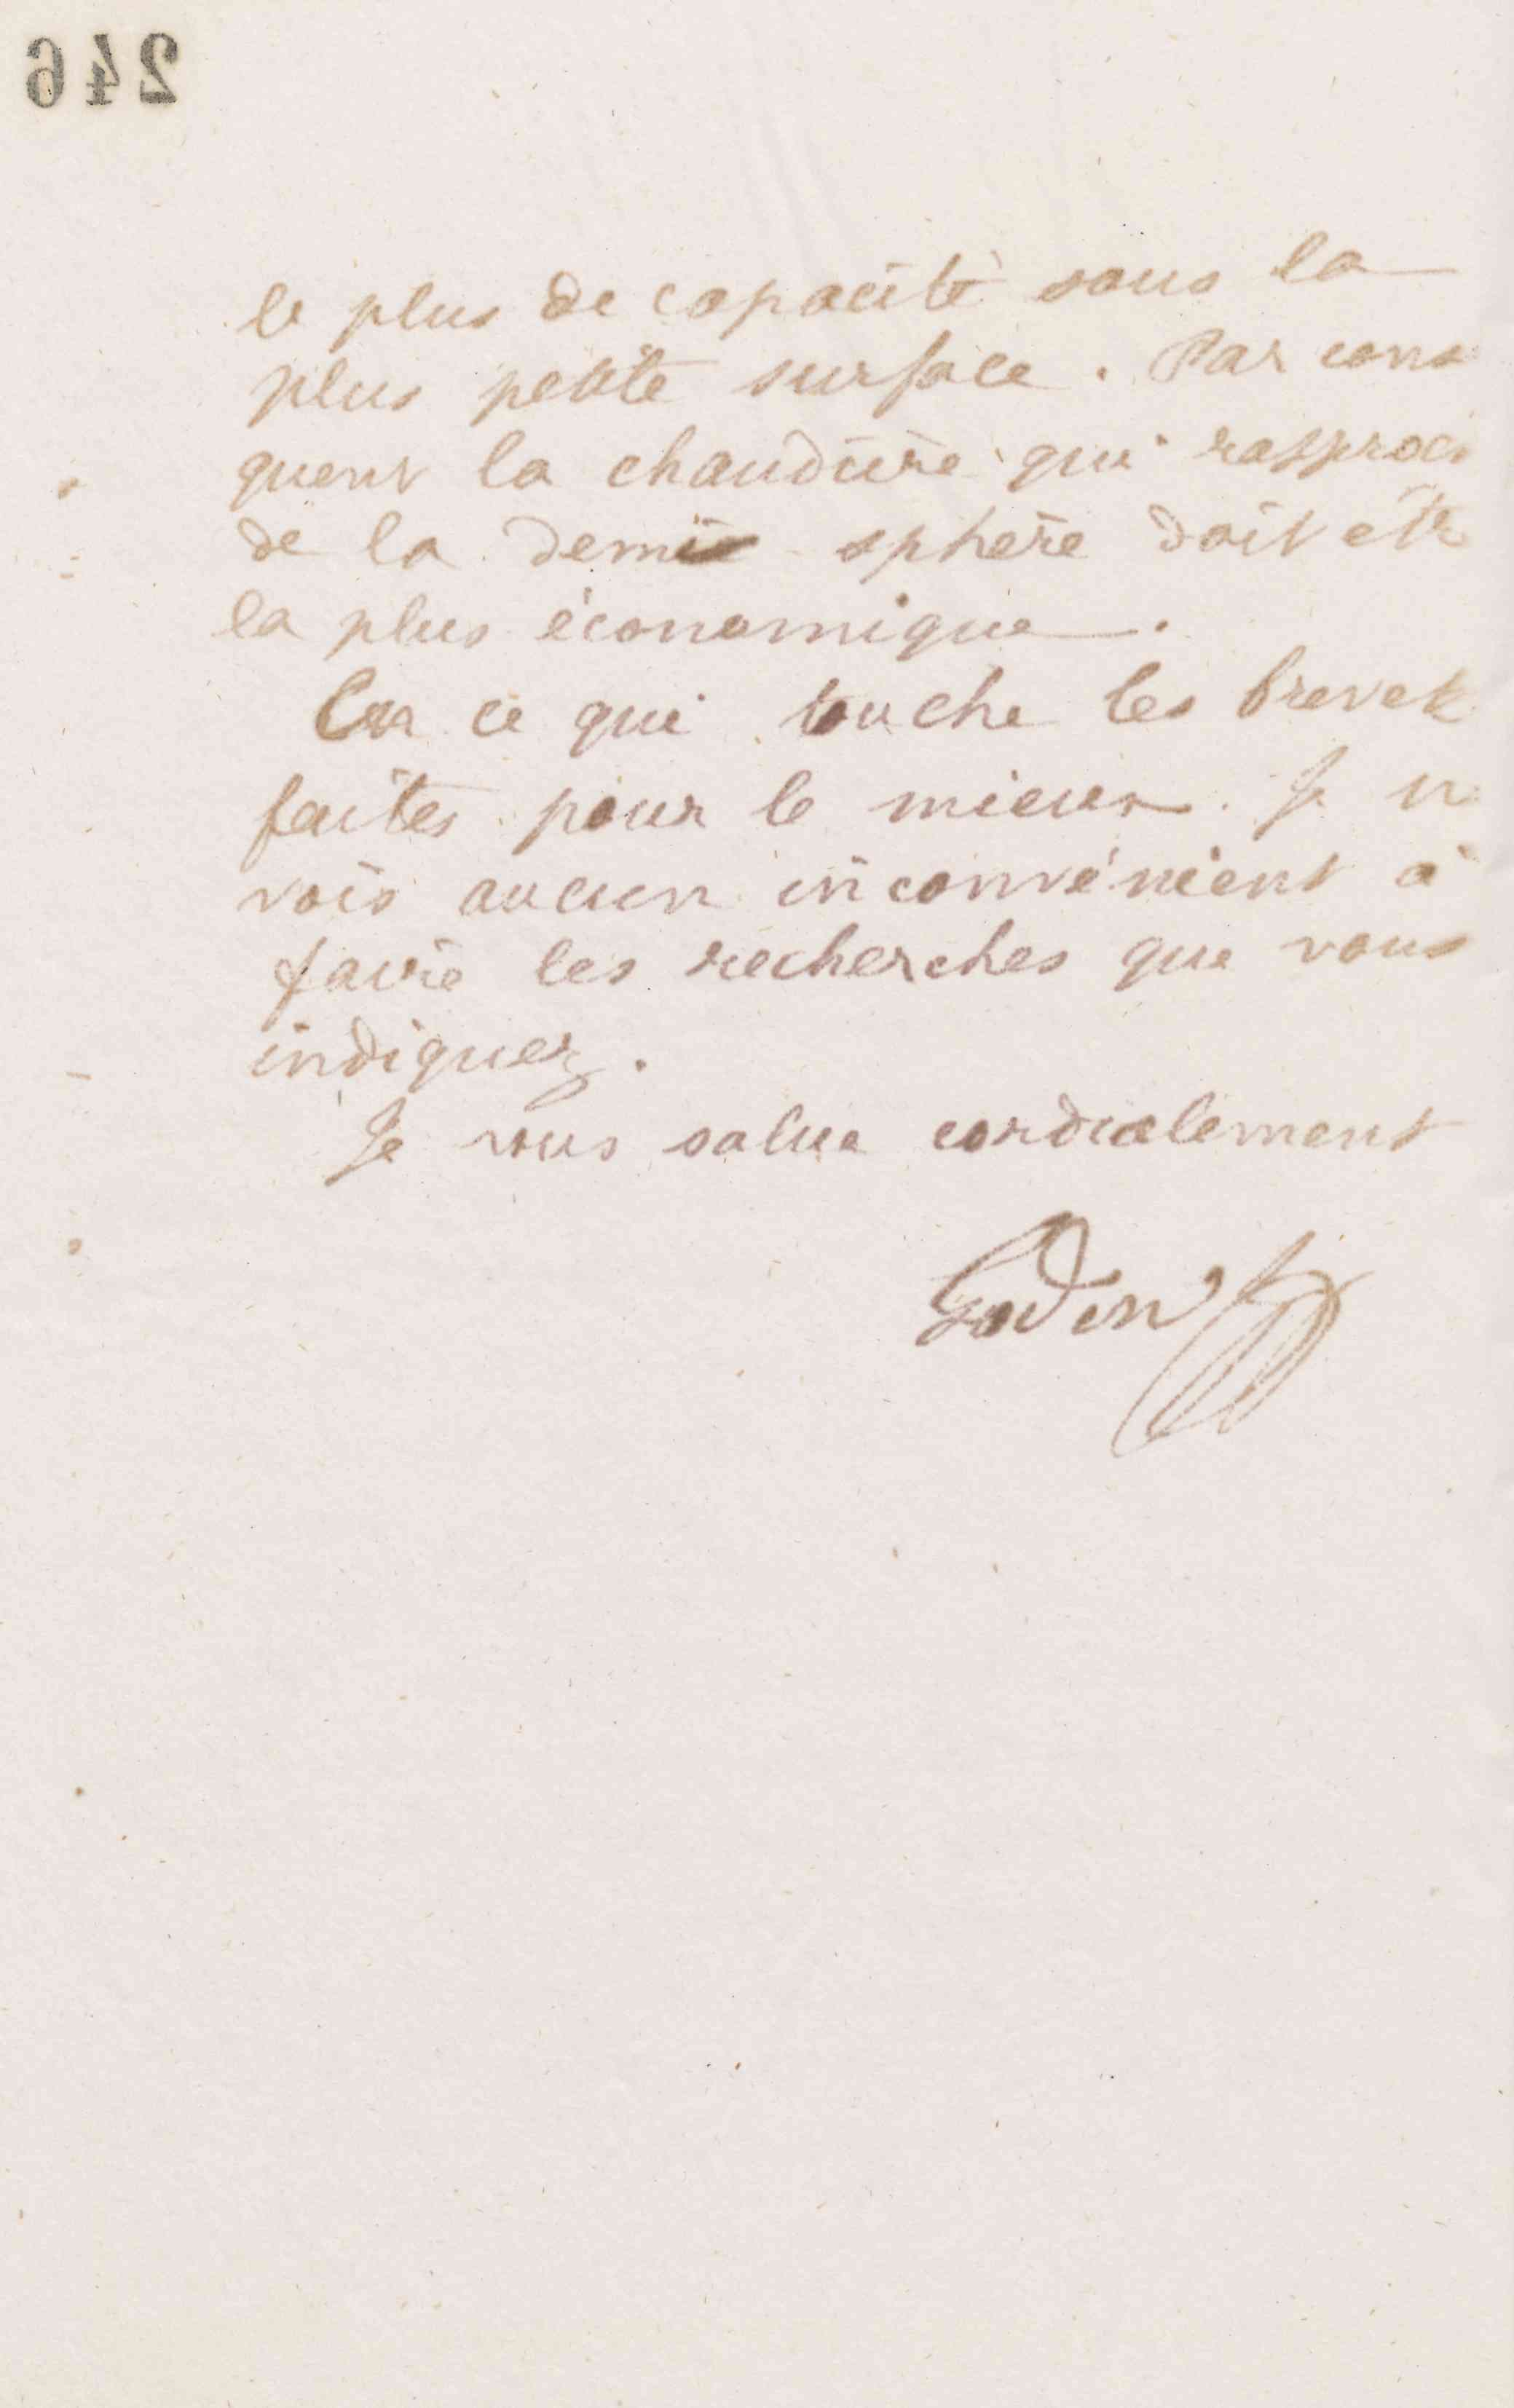 246
le plus de capacité sous la
plus petite surface. Par cons
quent la chaudière qui rapproc
de la demie sphère doit êtr
la plus économique.
En ce qui touche les brevets
faites pour le mieux. Je n
vois aucun inconvénient à
faire les recherches que vous
indiquez.
Je vous salue cordialement
Godin